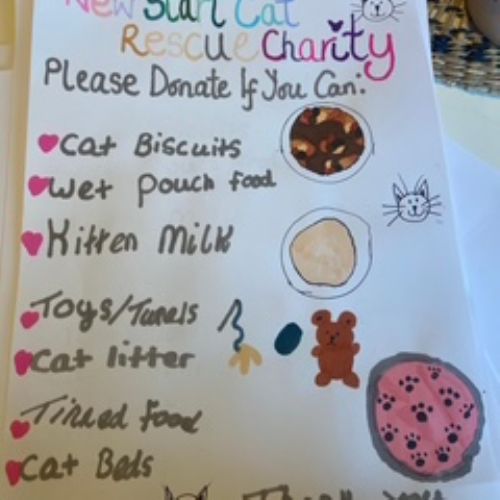 New Start Cat
Rescue Charity
Please Donate If You Can:
Cat Biscuits
Wet Pouch food
Kitten Milk
Toys/Tunels
Cat litter
Tinned food
Cat Beds
Thank you